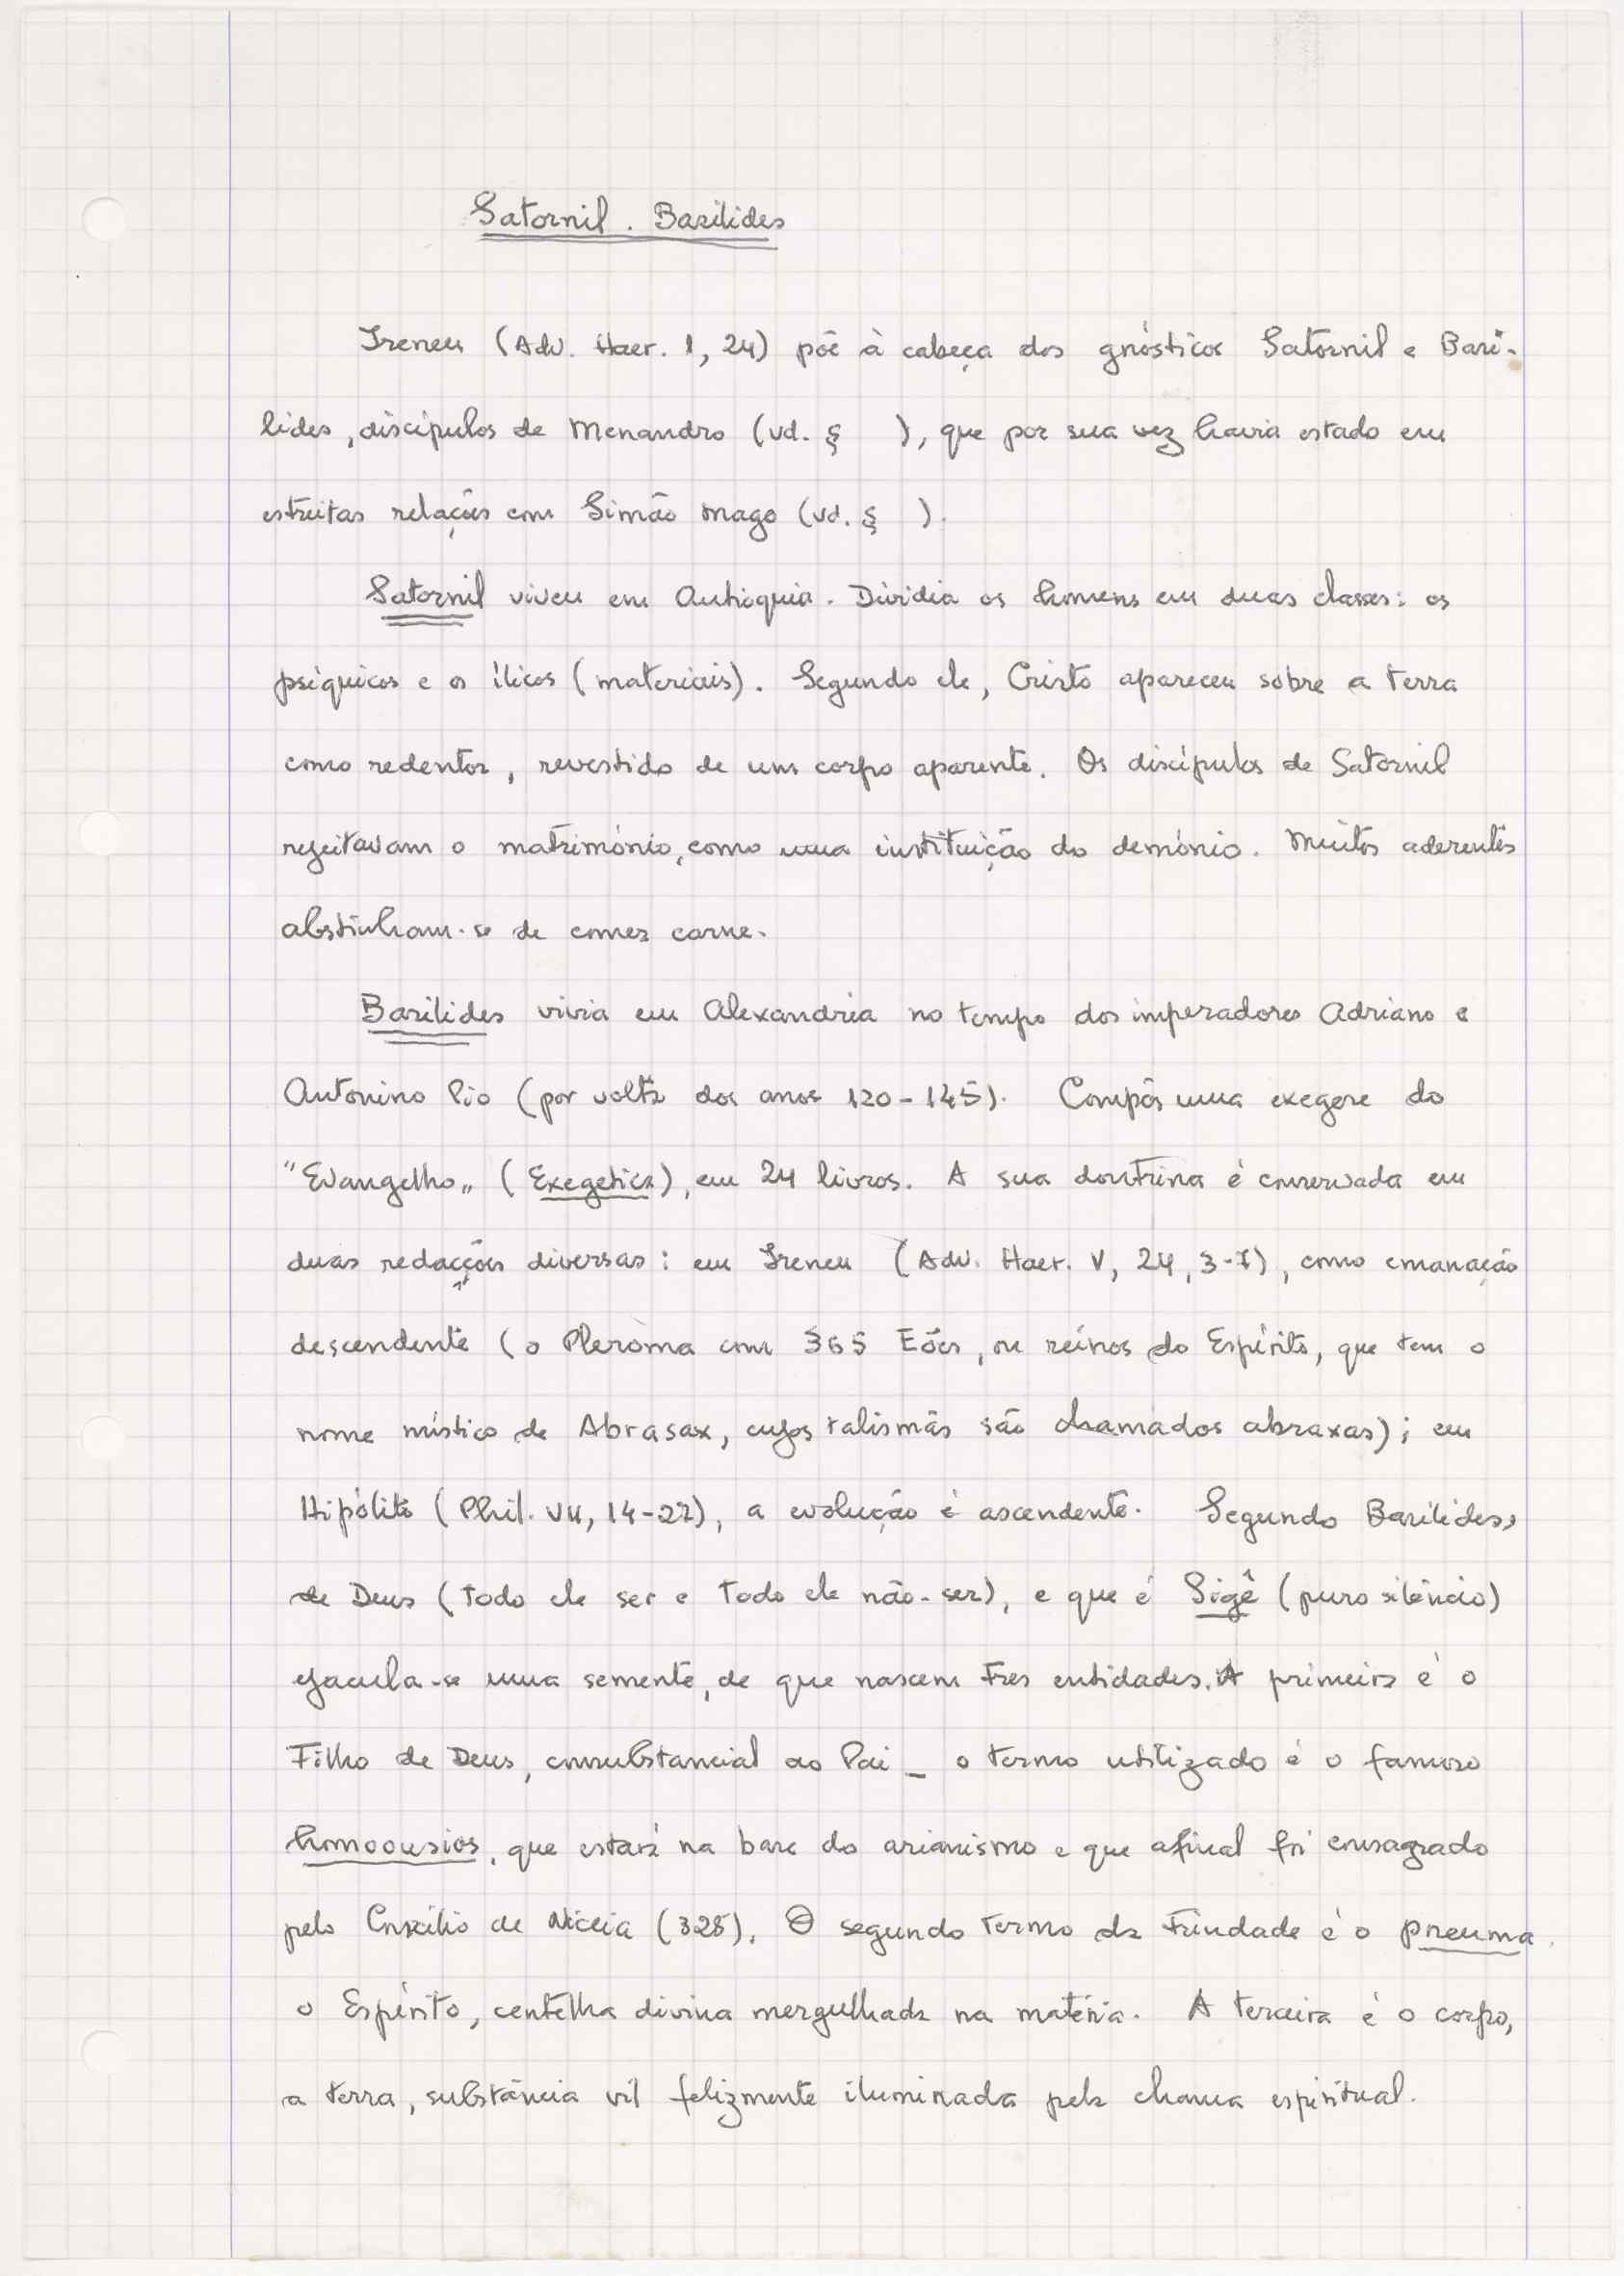 Satornil. Basilides
Ireneu (Adv. Haer. 1, 24) põe à cabeça dos gnósticos Satornil e Basi-
lides, discípulos de Menandro (vd. § ), que por sua vez havia estado em
estreitas relações com Simão Mago (vd. § ).
Satornil viveu em Antioquia. Dividia os homens em duas classes: os
psíquicos e os ílicos (materiais). Segundo ele, Cristo apareceu sobre a terra
como redentor, revestido de um corpo aparente. Os discípulos de Satornil
rejeitavam o matrimónio, como uma instituição do demónio. Muitos aderentes
abstinham-se de comer carne.
Basilides vivia em Alexandria no tempo dos imperadores Adriano e
Antonino Pio (por volta dos anos 120-145). Compôs uma exegese do
"Evangelho" (Exegetica), em 24 livros. A sua doutrina é conservada em
duas redacções diversas: em Ireneu (Adv. Haer. V, 24, 3-7), como emanação
descendente (o Pleroma com 365 Eões, ou reinos do Espírito, que tem o
nome místico de Abrasax, cujos talismãs são chamados abraxas); em
Hipólito (Phil. VII, 14-27), a evolução é ascendente. Segundo Basilides,
de Deus (todo ele ser e todo ele não-ser), e que é Sigê (puro silêncio)
ejacula-se uma semente, de que nascem tres entidades. A primeira é o
Filho de Deus, consubstancial ao Pai - o termo utilizado é o famoso
homoousios, que estará na base do arianismo e que afinal foi consagrado
pelo Concílio de Niceia (325). O segundo termo da Trindade é o pneuma,
o Espírito, centelha divina mergulhada na matéria. A terceira é o corpo,
a terra, substância vil felizmente iluminada pela chama espiritual.